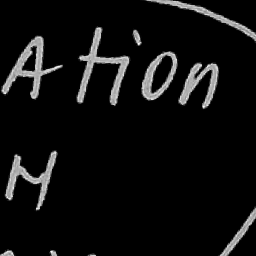 Ation
M